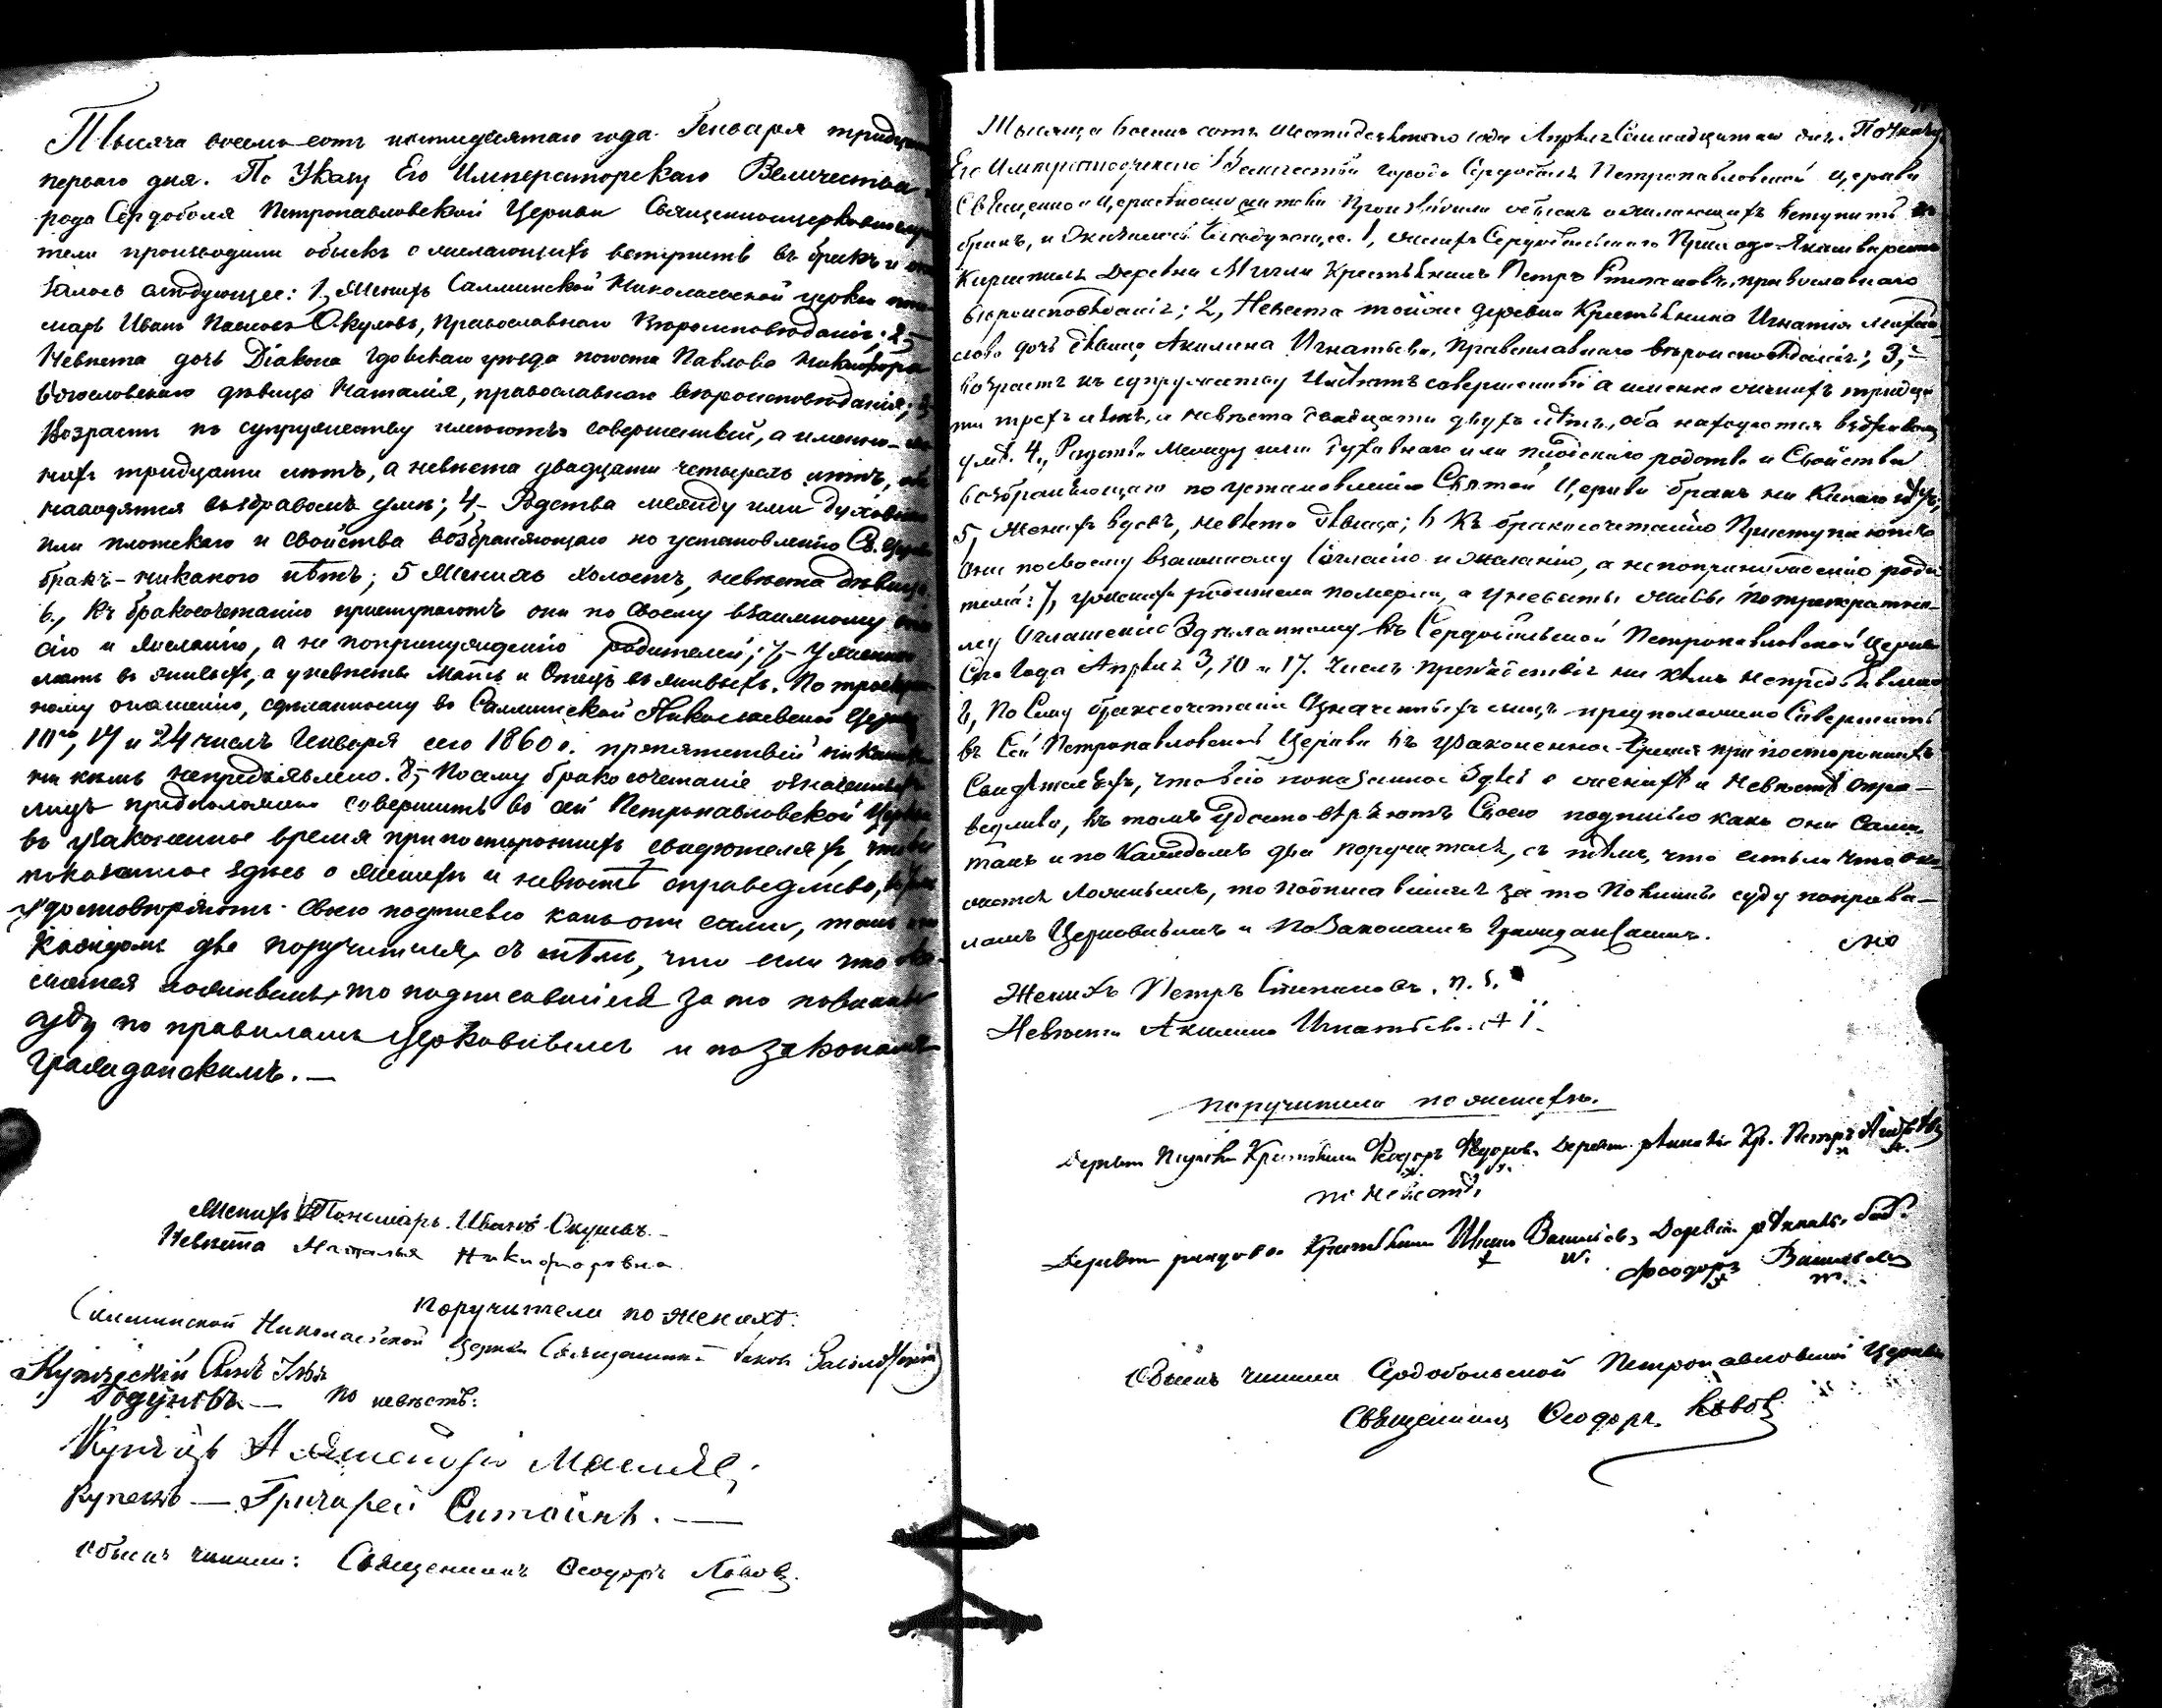 Тысяча восемь сотъ шестидесятаго года Генваря тридцать
перваго дня. По Указу Его Императорскаго Величества
рода Сердоболя Петропавловской Церкви Священноцерковнослужи
тели производили обыскъ о желающихъ вступить въ бракъ и ока
залось слѣдующее: 1, Женихъ Салминской Николаевской церкви поно
марь Иванъ Павловъ Окуловъ, православнаго вѣроисповѣданія; 2,
Невѣста дочь Діакона Гдовскаго уѣзда погоста Павлова Никифора
Богословскаго дѣвица Наталія, православнаго вѣроисповѣданія; 3
Возрастъ къ супружеству имѣютъ совершенный, а именно – же
нихъ тридцати лѣтъ, а невѣста двадцати четырехъ лѣтъ, оба
находятся въ здравомъ умѣ; 4,- Родства между ими духовнаго
или плотскаго и свойства возбраняющаго по установленію Св. Церкви
бракъ – никакого нѣтъ; 5 Женихъ холостъ, невѣста дѣвица
6., Къ бракосочетанію приступаютъ они по своему взаимному согла
сію и желанію, а не по принужденію родителей; 7,- У жениха
мать въ живыхъ, а у невѣсты Мать и Отецъ въ живыхъ. По троекрат
ному оглашенію, сдѣланному въ Салминской Николаевской Церкви
17 и 24 числъ Генваря сего 1860 г. препятствій никакихъ
ни кѣмъ непредъявлено. 8,- Посему бракосочетаніе означенныхъ
лицъ предположено совершить въ сей Петропавловской Церкви
въ узаконенное время при постороннихъ свидѣтеляхъ, что все
показанное здѣсь о женихѣ и невѣстѣ справедливо, въ томъ
удостовѣряютъ своею подписью какъ они сами, такъ и по
каждомъ два поручителя, съ тѣмъ, что если что ока
жется ложнымъ, то подписавшіеся за то повинны
суду по правиламъ Церковнымъ и по законамъ
Гражданскимъ. —
Женихъ Пономарь Иванъ Окуловъ. –
Невѣста Наталья Никифоровна
Поручители по женихѣ:
Салминской Николаевской Церкви Священникъ Іаковъ
Купеческій Сынъ Илья
Годуновъ — по невѣстѣ:
Купецъ
Купецъ — Григорей Ситойнъ. —
Обыскъ чинили: Священникъ Ѳеодоръ Львовъ.
Тысяща восемь сотъ шестидесятого года Апрѣля Семнадцатаго дня. По Указу
Его Императорскаго Величества города Сердоболя Петропавловской церкви
Священно и церковнослужители производили обыскъ о желающихъ вступить въ
бракъ, и оказалось слѣдующее. 1, женихъ Сердобольскаго Прихода
деревни Крестьянинъ Петръ Степановъ, православнаго
вѣроисповѣданія; 2, Невѣста той же деревни Крестьянина Игнатія
дочь дѣвица Акилина Игнатьева, Православнаго вѣроисповѣданія; 3,-
возрастъ къ супружеству имѣютъ совершенный а именно женихъ тридца
ти трехъ лѣтъ, и невѣста двадцати двухъ лѣтъ, оба находятся въ здравомъ
умѣ. 4., Родства между ими духовнаго или плотскаго родства и Свойства
возбраняющаго по установленію Святой Церкви бракъ никакаго нѣтъ;
5, Женихъ вдовъ, невѣста дѣвица; 6 Къ бракосочетанію приступаютъ
они по своему взаимному согласію и желанію, а не по принужденію роди
телей: 7, у жениха родители померли, а у невѣсты живы. По троекратно-
му Оглашенію Здѣланному въ Сердобольской Петропавловской Церкви
Сего Года Апрѣля 3, 10 и 17. Числъ препятствія ни кѣмъ непредъявлено
8, По Сему бракосочетаніе Означенныхъ лицъ предположено Совершить
въ Сей Петропавловской Церкви въ узаконенное время при постороннихъ
Свидѣтеляхъ, что всё показанное здѣсь о женихѣ и невѣстѣ спра-
ведливо, въ томъ удостовѣряютъ Своею подписью какъ они Сами,
такъ и по Каждомъ два поручителя, съ тѣмъ, что естьли что ока
жется Ложнымъ, то подписавшіеся за то повинны суду по прави-
ламъ Церковнымъ и по Законамъ Гражданскимъ.
Женихъ Петръ Степановъ. П. S.
Невѣста Акилина Игнатьева. A I.
поручители по женихѣ.
Деревни Крестьянинъ Ѳеодоръ Ѳедоровъ. Деревни Кр. Петръ
по невѣстѣ,
Деревни Крестьянинъ Василіевъ, Деревни
Ѳеодоръ Васильевъ
Обыскъ чинили Сердобольской Петропавловской Церкви
Священникъ Ѳеодоръ Львовъ